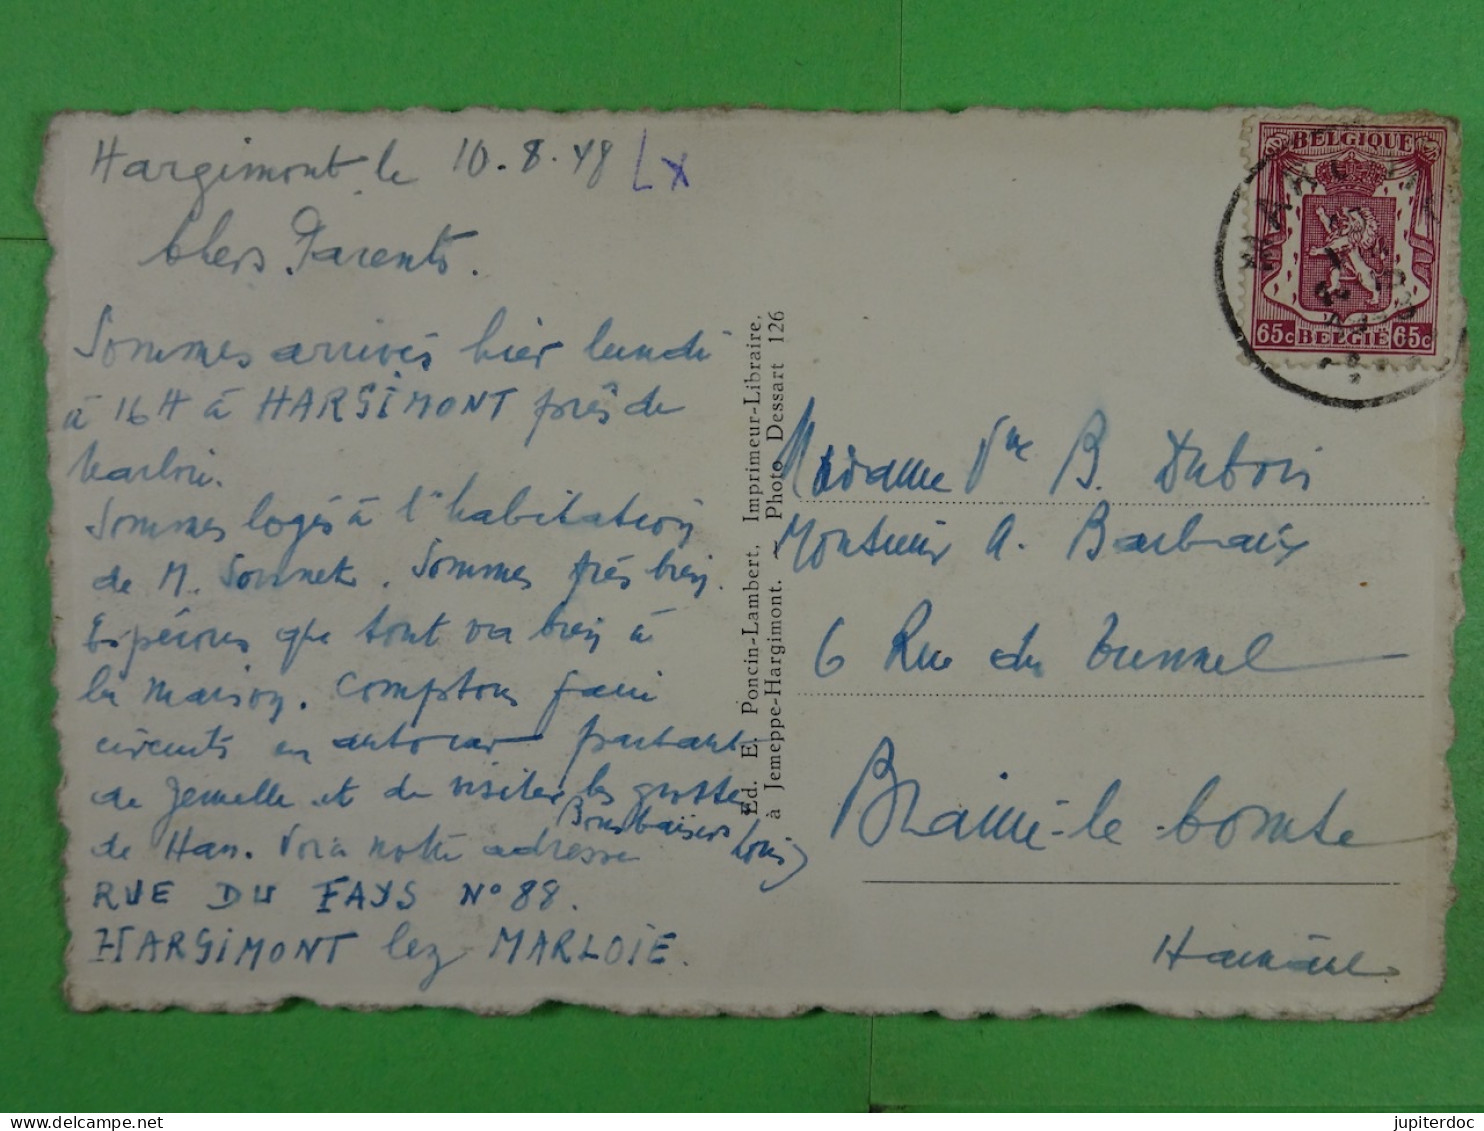 Hargimont le 10.8.48 Lx
Chers Parents.
Sommes arrivés hier lundi
à 16H à HARGIMONT près de
Marloie.
Sommes logés à l'habitation
de M. Sonnet. Sommes très bien.
Espérons que tout va bien à
la maison. Comptons faire
circuits en autocar partant
de Jemelle et de visiter les grottes
de Han. Voir notre adresse
Bons baisers
RUE DU FAYS N° 88.
HARGIMONT lez MARLOIE.
Ed. E. Poncin-Lambert, Imprimeur-Libraire,
à Jemeppe-Hargimont. — Photo Dessart 126
BELGIQUE
65c BELGIE 65c
Madame Vve B. Dubois
Monsieur A. Barbaix
6 Rue du Tunnel
Braine-le-Comte
Hainaut
www.delcampe.net
jupiterdoc